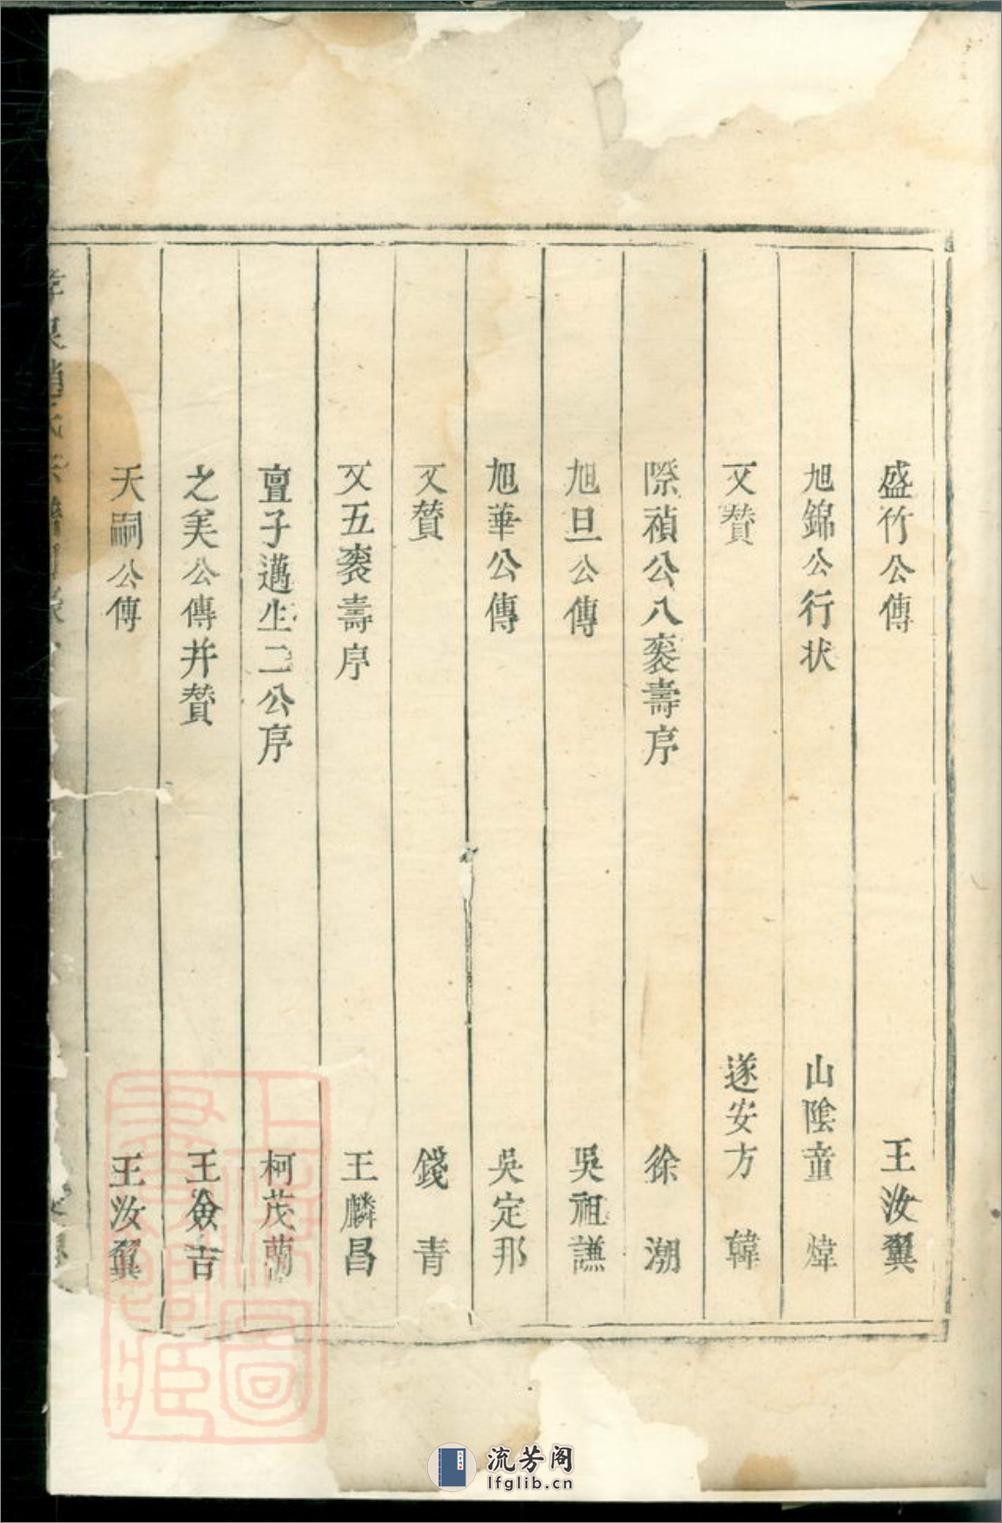 盛竹公傳 王汝翼
旭錦公行状 山陰童煒
又贊 遂安方韓
際禎公八袠壽序 徐潮
旭旦公傳 吳祖謙
旭華公傳 吳定那
又贊 錢青
又五袠壽序 王麟昌
亶子邁生二公序 柯茂蘭
之美公傳并贊 王僉吉
天嗣公傳 王汝翼
上海圖書館藏
流芳阁
lfglib.cn